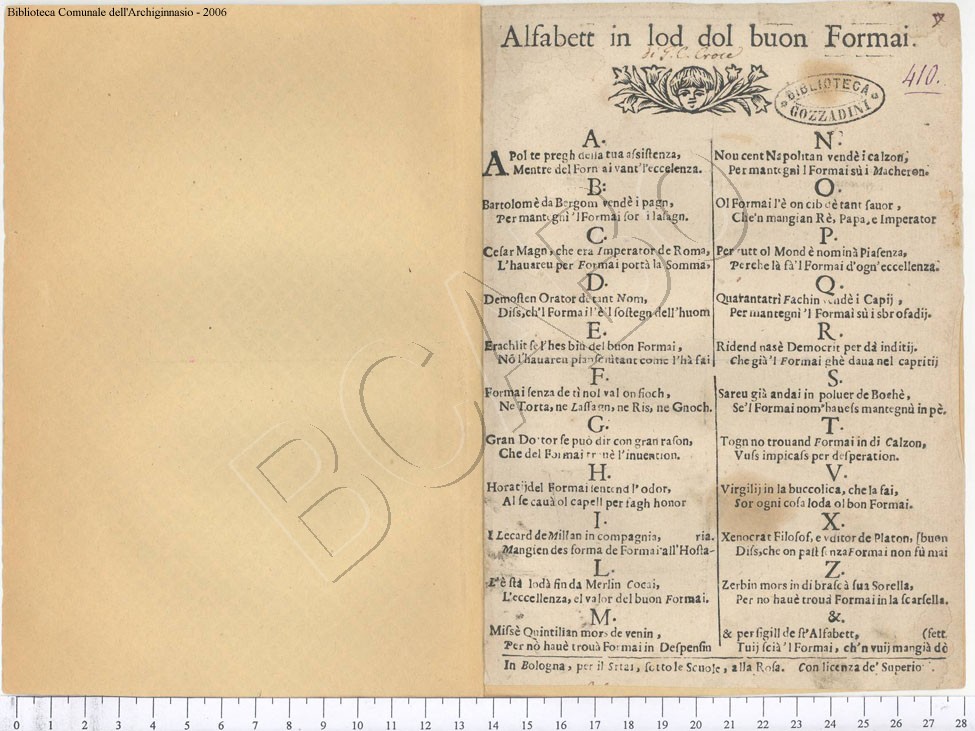 Biblioteca Comunale dell'Archiginnasio - 2006
Alfabett in lod dol buon Formai.
di G. C. Croce
410.
BIBLIOTECA
GOZZADINI
A.
APol te pregh della tua assistenza,
Mentre del Formai vant'l'eccelenza.
B:
Bartolomè da Bergom vendè i pagn,
Per mantegni 'l Formai sor i lasagn.
C.
Cesar Magn, che era Imperator de Roma,
L'hauareu per Formai portà la Somma,
D.
Demosten Orator de tant Nom,
Diss, ch'l Formai l'è 'l sostegn dell'huom
E.
Erachlit se l'hes biù del buon Formai,
Nõ l'hauareu tant come l'hà fai
F.
Formai senza de tì nol val on fioch,
Ne Torta, ne Lassagn, ne Ris, ne Gnoch.
G.
Gran Dottor se può dir con gran rason,
Che del Formai l'inuention.
H.
Horatij del Formai sentend l'odor,
Al se cauà ol capell per fagh honor
I.
I Lecard de Millan in compagnia, ria.
Mangien des forma de Formai all'Hosta-
L.
L'è stà lodà fin da Merlin Cocai,
L'eccellenza, el valor del buon Formai.
M.
Missè Quintilian mors de venin,
Per nò hauè trouà Formai in Despensin
N.
Nou cent Napolitan vendè i calzon,
Per mantegnì l Formai sù i Macheron.
O.
Ol Formai l'è on cib dè tant sauor,
Che'n mangian Rè, Papa, e Imperator
P.
Per tutt ol Mond è nominà Piasenza,
Perche là fà'l Formai d'ogn'eccellenza.
Q.
Quarantatrì Fachin vendè i Capij,
Per mantegni 'l Formai sù i sbrofadij.
R.
Ridend nasè Democrit per dà inditij.
Che già 'l Formai ghè daua nel capritij
S.
Sareu già andai in poluer de Boehè,
Se'l Formai nom'hauess mantegnù in pè.
T.
Togn no trouand Formai in di Calzon,
Vuss impicass per desperation.
V.
Virgilij in la buccolica, che la sai,
Sor ogni cosa loda ol bon Formai.
X.
Xenocrat Filosof, e vditor de Platon, [buon
Diss, che on past senza Formai non fù mai
Z.
Zerbin mors in di brasc à sua Sorella,
Per no hauè trouà Formai in la scarsella.
&.
& per sigill de st'Alfabett, (fett
Tuij scià 'l Formai, ch'n vuij mangià dè
In Bologna, per il , sotto le Scuole, alla Rosa. Con licenza de' Superio
BCABO
0 1 2 3 4 5 6 7 8 9 10 11 12 13 14 15 16 17 18 19 20 21 22 23 24 25 26 27 28